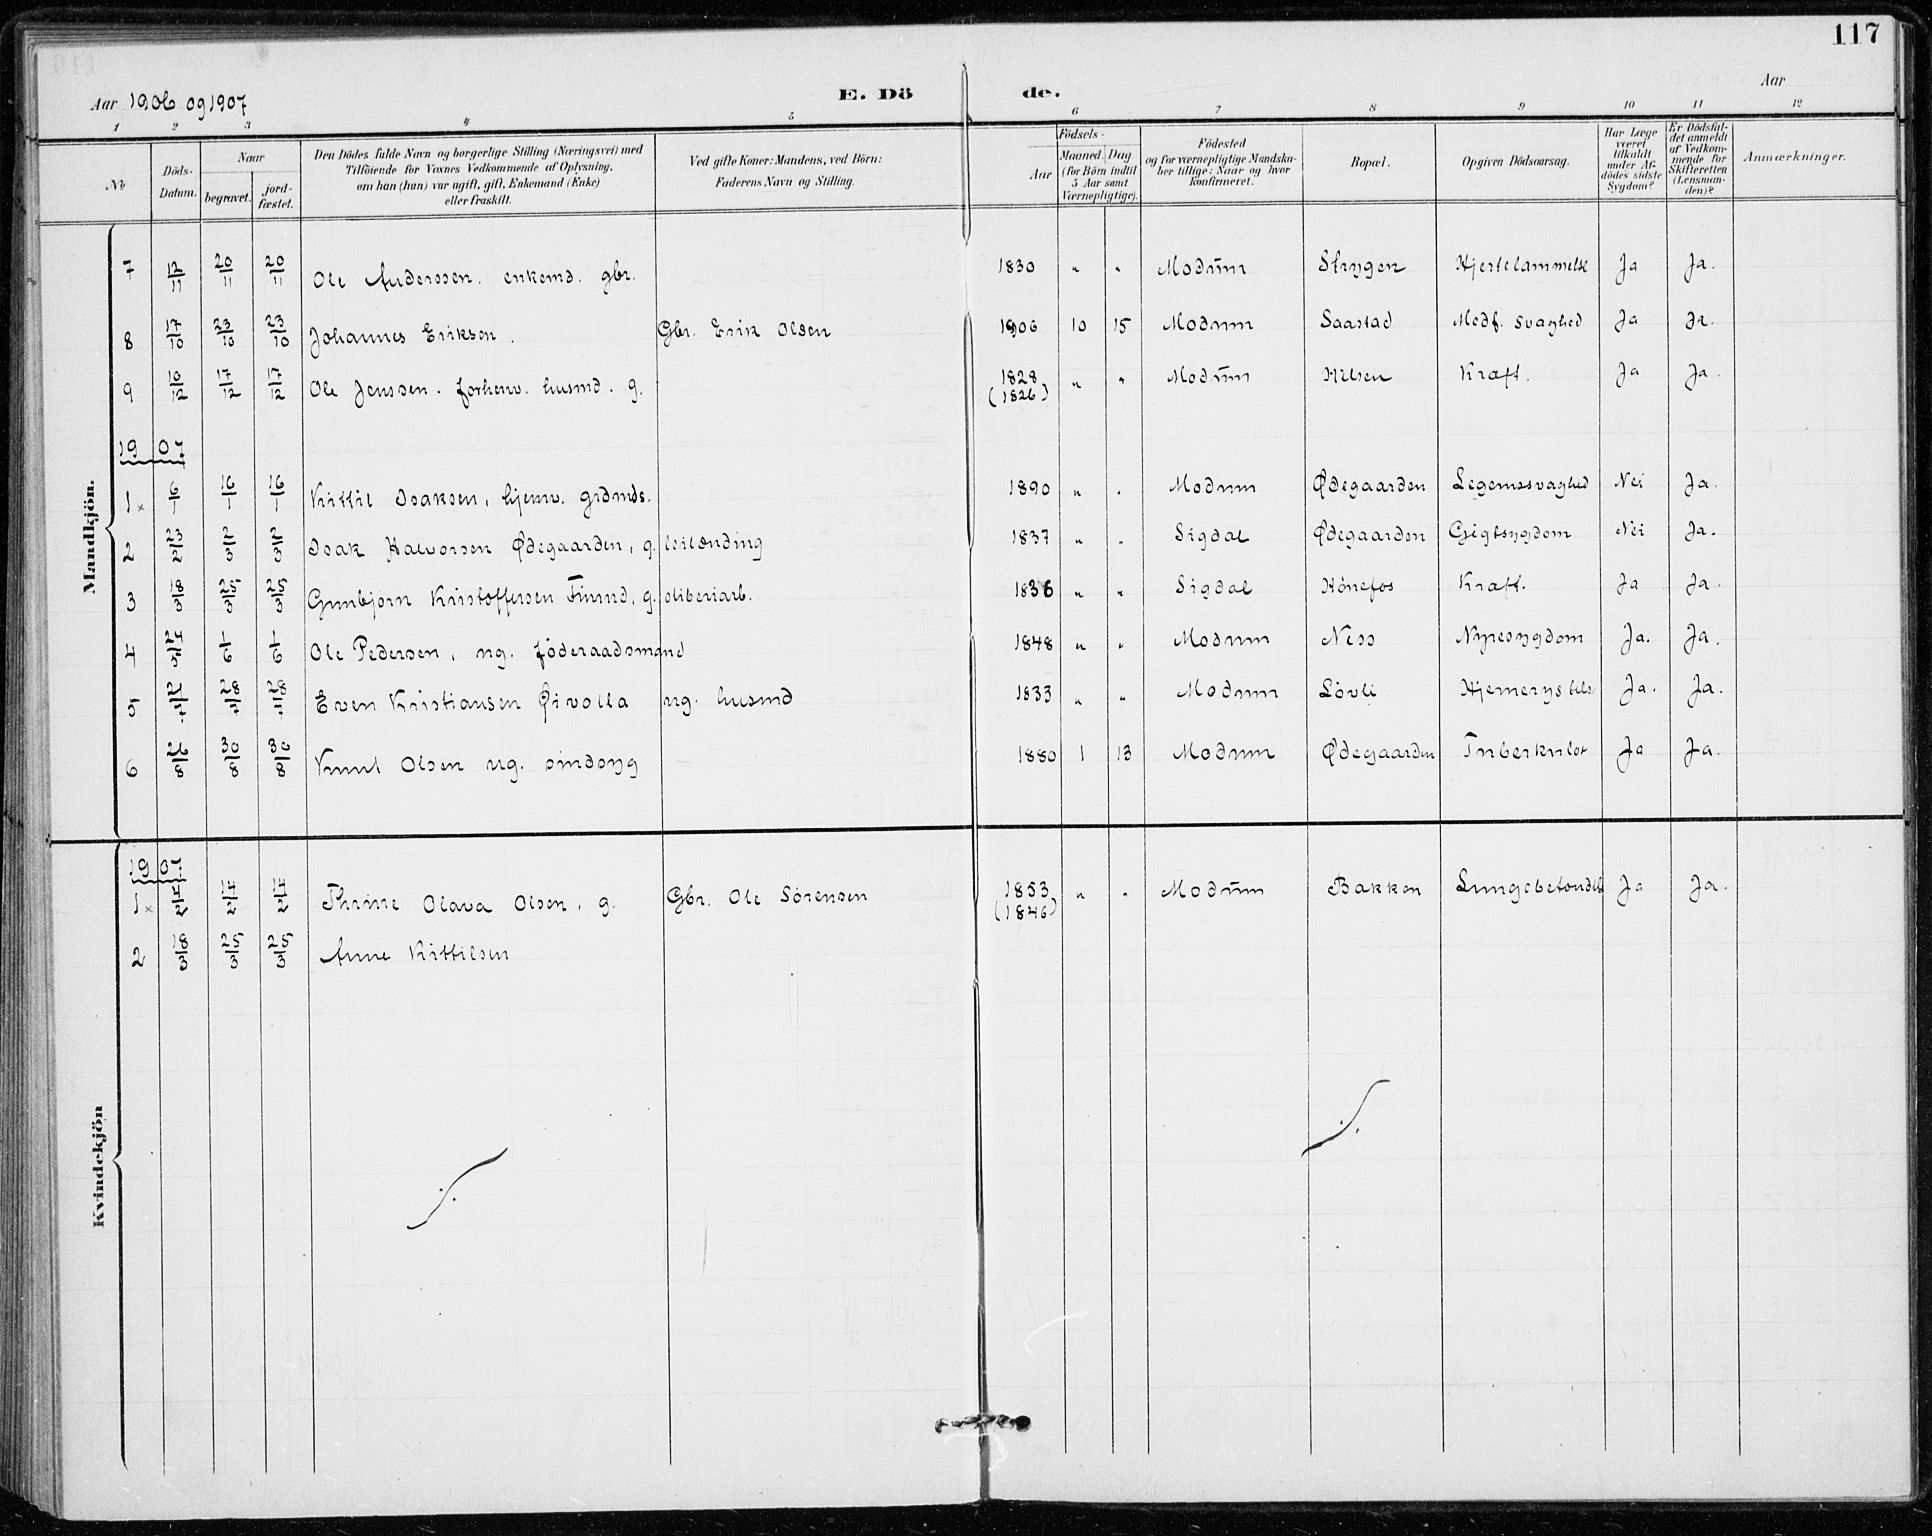 117
Aar 1906 og 1907 E. Dö de. Aar
1 2 3 4 5 6 7 8 9 10 11 12
No Döds-Datum. Naar begravet. jordfæstet. Den Dödes fulde Navn og borgerlige Stilling (Næringsvei) med Tilföiende for Voxnes Vedkommende af Oplysning, om han (hun) var ugift, gift, Enkemand (Enke) eller fraskilt. Ved gifte Koner: Mandens, ved Börn: Faderens Navn og Stilling. Födsels- Aar Maaned. Dag (for Börn indtil 5 Aar samt Værnepligtige). Födested og for værnepligtige Mandskaber tillige: Naar og hvor konfirmeret. Bopæl. Opgiven Dödsaarsag. Har Læge været tilkaldt under Afdödes sidste Sygdom? Er Dödsfaldet anmeldt af Vedkommende for Skifteretten (Lensmanden)? Anmærkninger.
Mandkjön.
7 12/11 20/11 20/11 Ole Anderssen. enkemd. gbr. 1830 " " Modum Strygen Hjertelammelse Ja Ja.
8 17/10 23/10 23/10 Johannes Eriksen. Gbr. Erik Olsen 1906 10 15 Modum Saastad Medf. svaghed Ja Ja.
9 10/12 17/12 17/12 Ole Jenssen. forhenv. husmd. g. 1828 (1826) " " Modum Kræft. Ja Ja.
1907
1 x 6/1 16/1 16/1 Kittil Isaksen, hjemv. grdmds. 1890 " " Modum Ødegaarden Legemssvaghed Nei Ja.
2 23/2 2/3 2/3 Isak Halvorsen Ødegaarden, g. leilænding 1837 " " Sigdal Ødegaarden Gigtsygdom Nei Ja.
3 18/3 25/3 25/3 Gunbjørn Kristoffersen g. sliberiarb. 1836 " " Sigdal Hönefos Kræft. Ja Ja.
4 1/6 1/6 Ole Pedersen, ug. föderaadsmand 1848 " " Modum Ness Nyresygdom Ja. Ja.
5 28/7 28/7 Even Kristiansen Øivolla ug. husmd 1833 " " Modum Lövli Hjernerystels Ja. Ja.
6 26/8 30/8 30/8 Knut Olsen ug. sindsyg 1880 1 13 Modum Ødegaarden Tuberkulos Ja Ja.
Kvindekjön
1907
1 x 14/2 14/2 Thrine Olava Olsen, g. Gbr. Ole Sörensen 1853 (1846) " " Modum Bakken Lungebetændels Ja Ja.
2 18/3 25/3 25/3 Anne Kittilsen